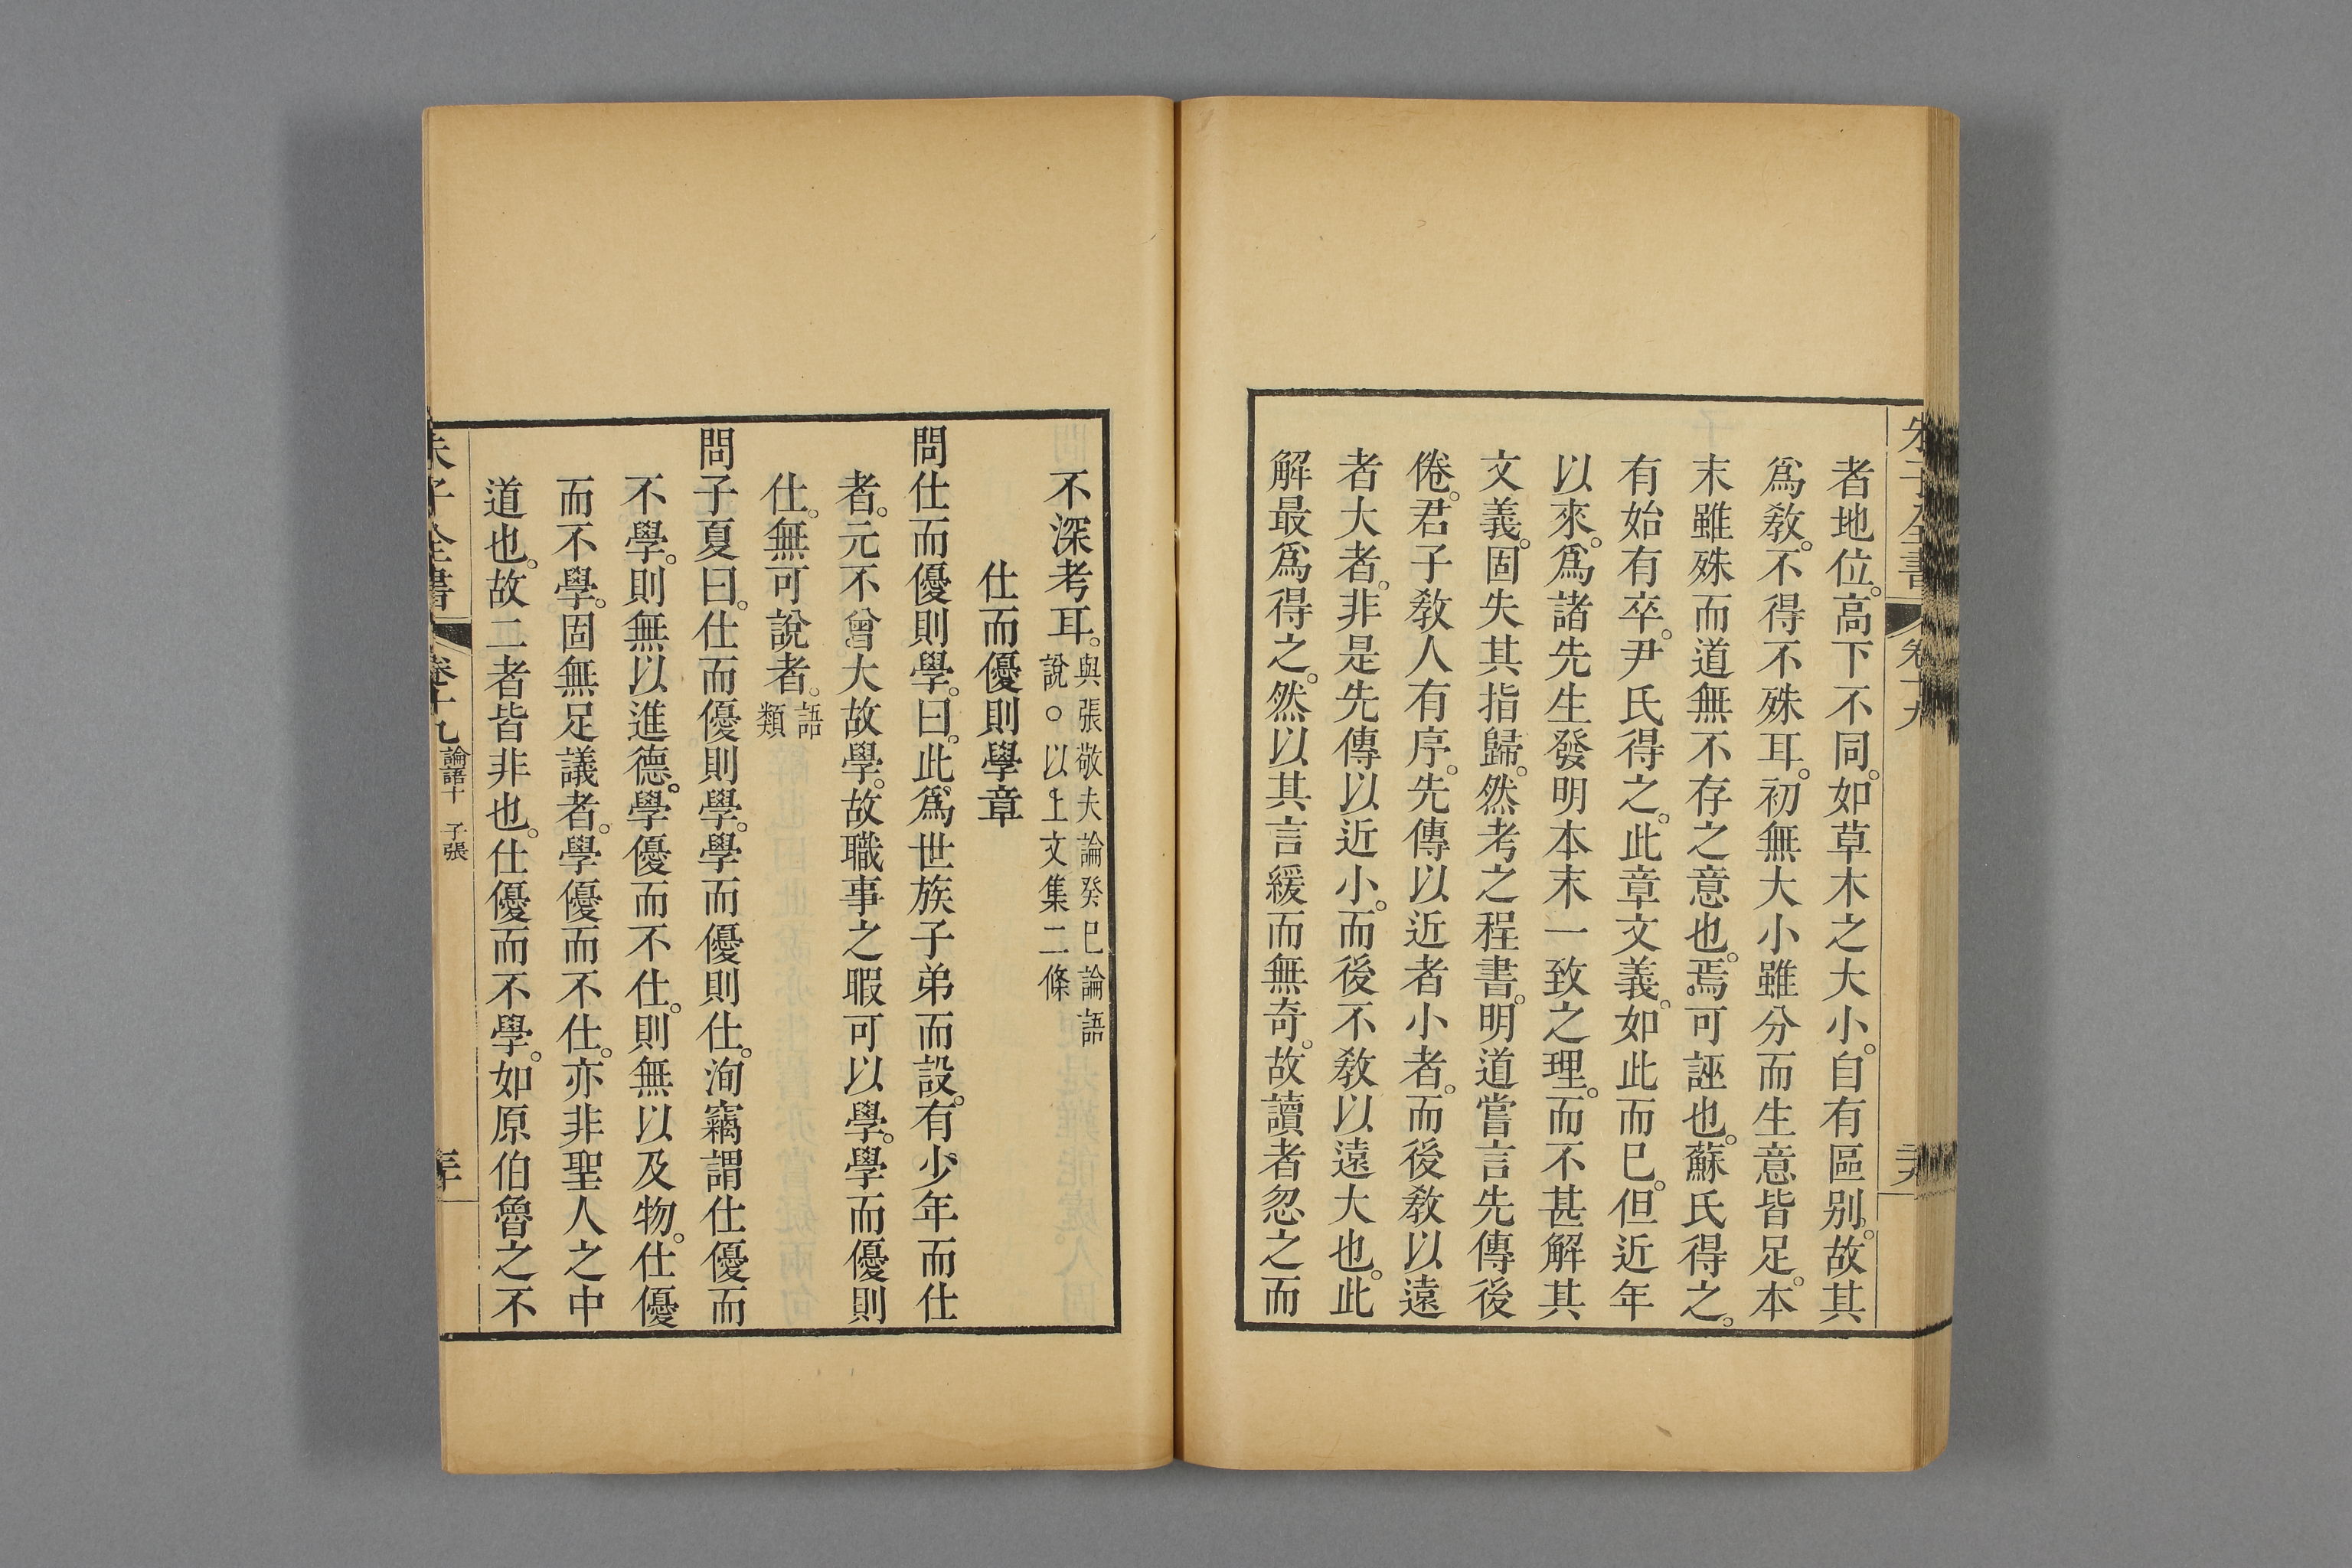 朱子全書 卷十九
者地位。高下不同。如草木之大小。自有區别。故其
爲敎。不得不殊耳。初無大小雖分而生意皆足。本
末雖殊而道無不存之意也。焉可誣也。蘇氏得之。
有始有卒。尹氏得之。此章文義。如此而已。但近年
以來。爲諸先生發明本末一致之理。而不甚解其
文義。固失其指歸。然考之程書。明道嘗言先傳後
倦。君子敎人有序。先傳以近者小者。而後敎以遠
者大者。非是先傳以近小。而後不敎以遠大也。此
解最爲得之。然以其言緩而無奇。故讀者忽之而
不深考耳。與張敬夫論癸巳論語
說。○以上文集二條
仕而優則學章
問仕而優則學。曰。此爲世族子弟而設。有少年而仕
者。元不曾大故學。故職事之暇可以學。學而優則
仕。無可說者。語
類
問子夏曰。仕而優則學。學而優則仕。洵竊謂仕優而
不學。則無以進德。學優而不仕。則無以及物。仕優
而不學。固無足議者。學優而不仕。亦非聖人之中
道也。故二者皆非也。仕優而不學。如原伯魯之不
朱子全書 卷十九 論語十 子張